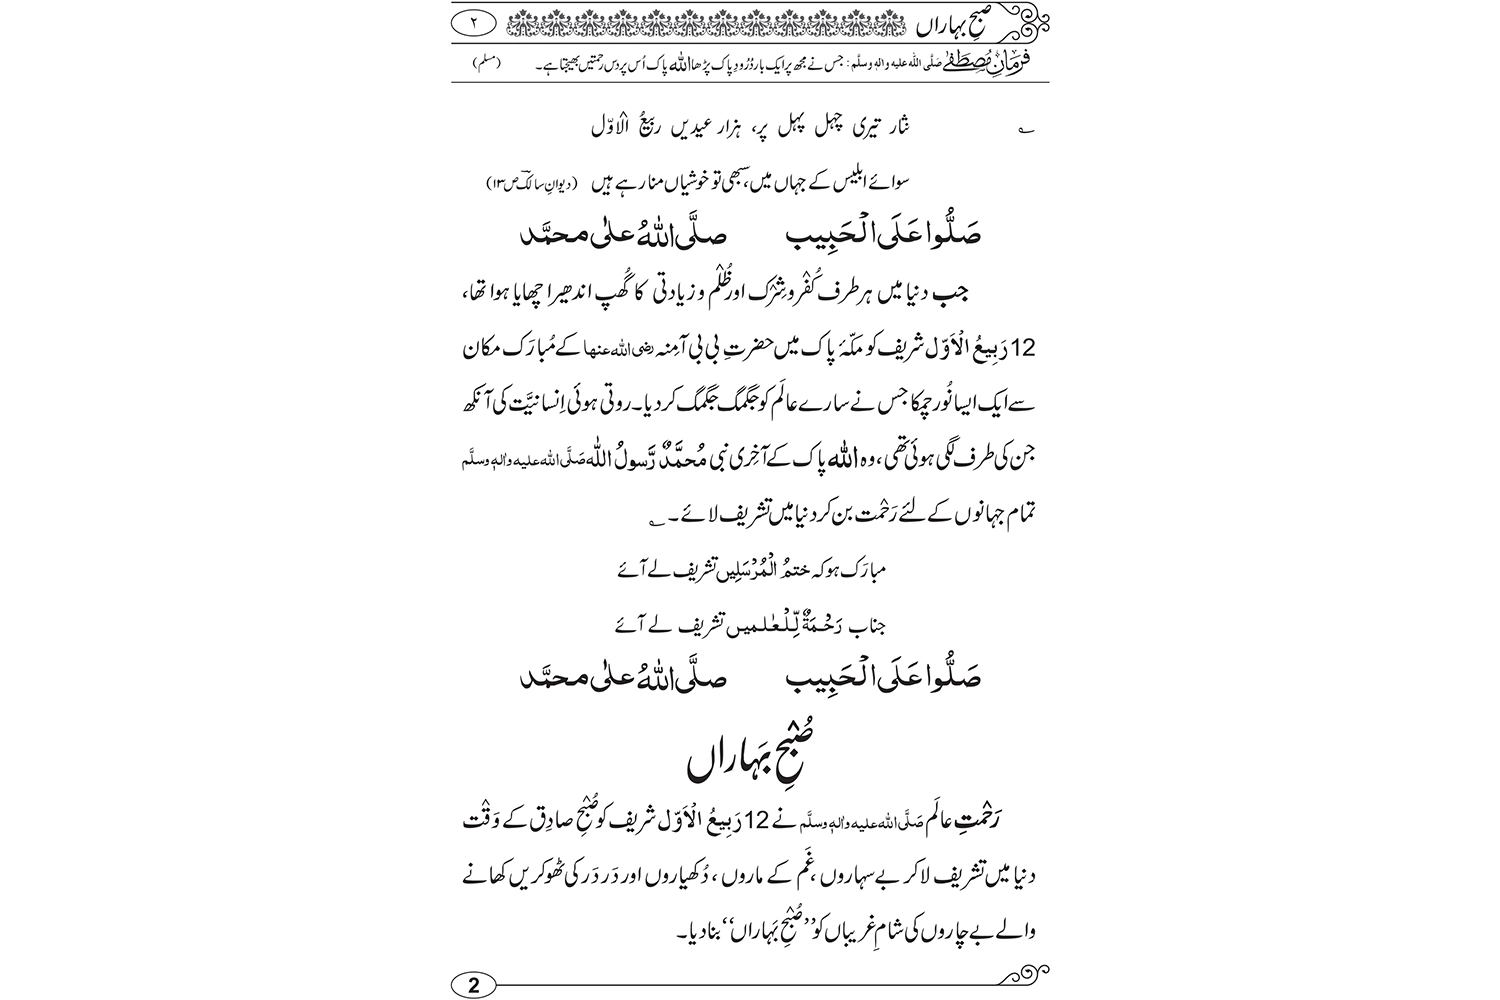 صبحِ بہاراں ۲
فرمانِ مصطفٰے صلَّی اللہ علیہ والہٖ وسلَّم: جس نے مجھ پر ایک بار دُرُودِ پاک پڑھا اللہ پاک اُس پر دس رحمتیں بھیجتا ہے۔ (مسلم)
؎ نثار تیری چہل پہل پر، ہزار عیدیں ربیعُ الْاوّل
سوائے ابلیس کے جہاں میں، سبھی تو خوشیاں منا رہے ہیں (دیوانِ سالکؔ ص۱۳)
صَلُّوا عَلَی الْحَبِیب صلَّی اللہُ علٰی محمَّد
جب دنیا میں ہر طرف کُفْر و شِرْک اور ظُلْم و زیادتی کا گُھپ اندھیرا چھایا ہوا تھا،
12 رَبِیعُ الْاَوّل شریف کو مکّۂ پاک میں حضرتِ بی بی آمِنہ رضی اللہ عنہا کے مُبارَک مکان
سے ایک ایسا نُور چمکا جس نے سارے عالَم کو جگمگ جگمگ کر دیا۔ روتی ہوئی اِنسانیَّت کی آنکھ
جن کی طرف لگی ہوئی تھی، وہ اللہ پاک کے آخِری نبی مُحمَّدٌ رَّسولُ اللہ صَلَّی اللہ علیہ واٰلہٖ وسلَّم
تمام جہانوں کے لئے رَحْمت بن کر دنیا میں تشریف لائے۔ ؎
مبارَک ہو کہ ختمُ الْمُرْسَلِیں تشریف لے آئے
جناب رَحْمَۃٌ لِّلْعٰلمیں تشریف لے آئے
صَلُّوا عَلَی الْحَبِیب صلَّی اللہُ علٰی محمَّد
صُبْحِ بَہاراں
رَحْمتِ عالَم صَلَّی اللہ علیہ واٰلہٖ وسلَّم نے 12 رَبِیعُ الْاَوّل شریف کو صُبْحِ صادِق کے وَقْت
دنیا میں تشریف لا کر بے سہاروں، غَم کے ماروں، دُکھیاروں اور دَر دَر کی ٹھوکریں کھانے
والے بے چاروں کی شامِ غریباں کو ’’صُبْحِ بَہاراں‘‘ بنا دیا۔
2